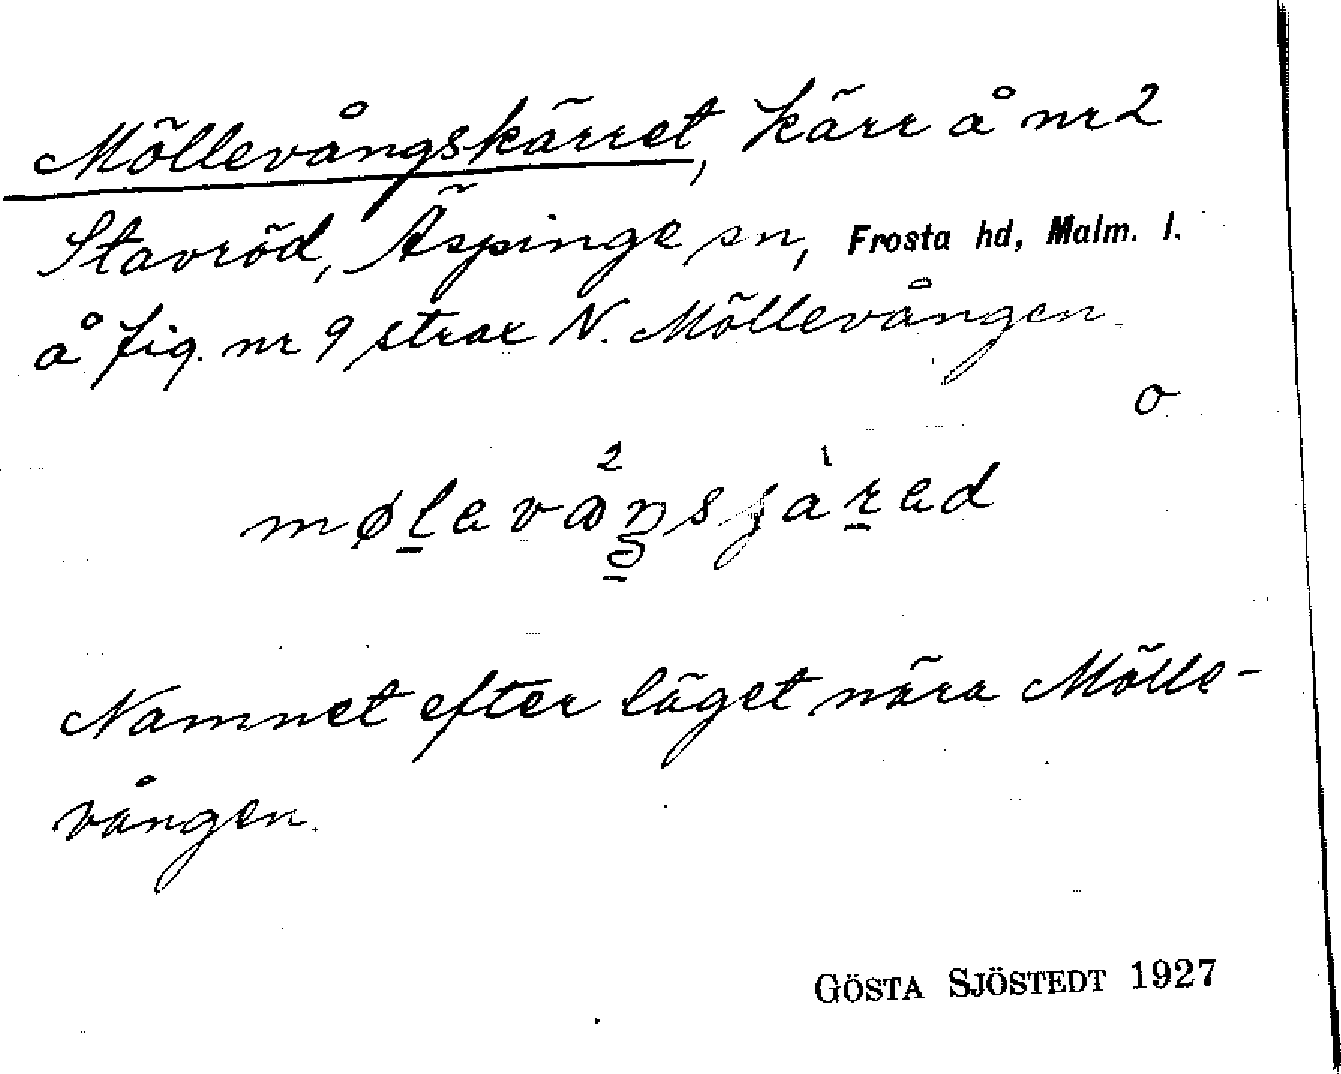 Möllevångskärret, kärr å nr 2
Stavröd, Äspinge sn, Frosta hd, Malm. l.
å fig. nr 9 strax N. Möllevången
o
Namnet efter läget nära Mölle-
vången.
GÖSTA SJÖSTEDT 1927